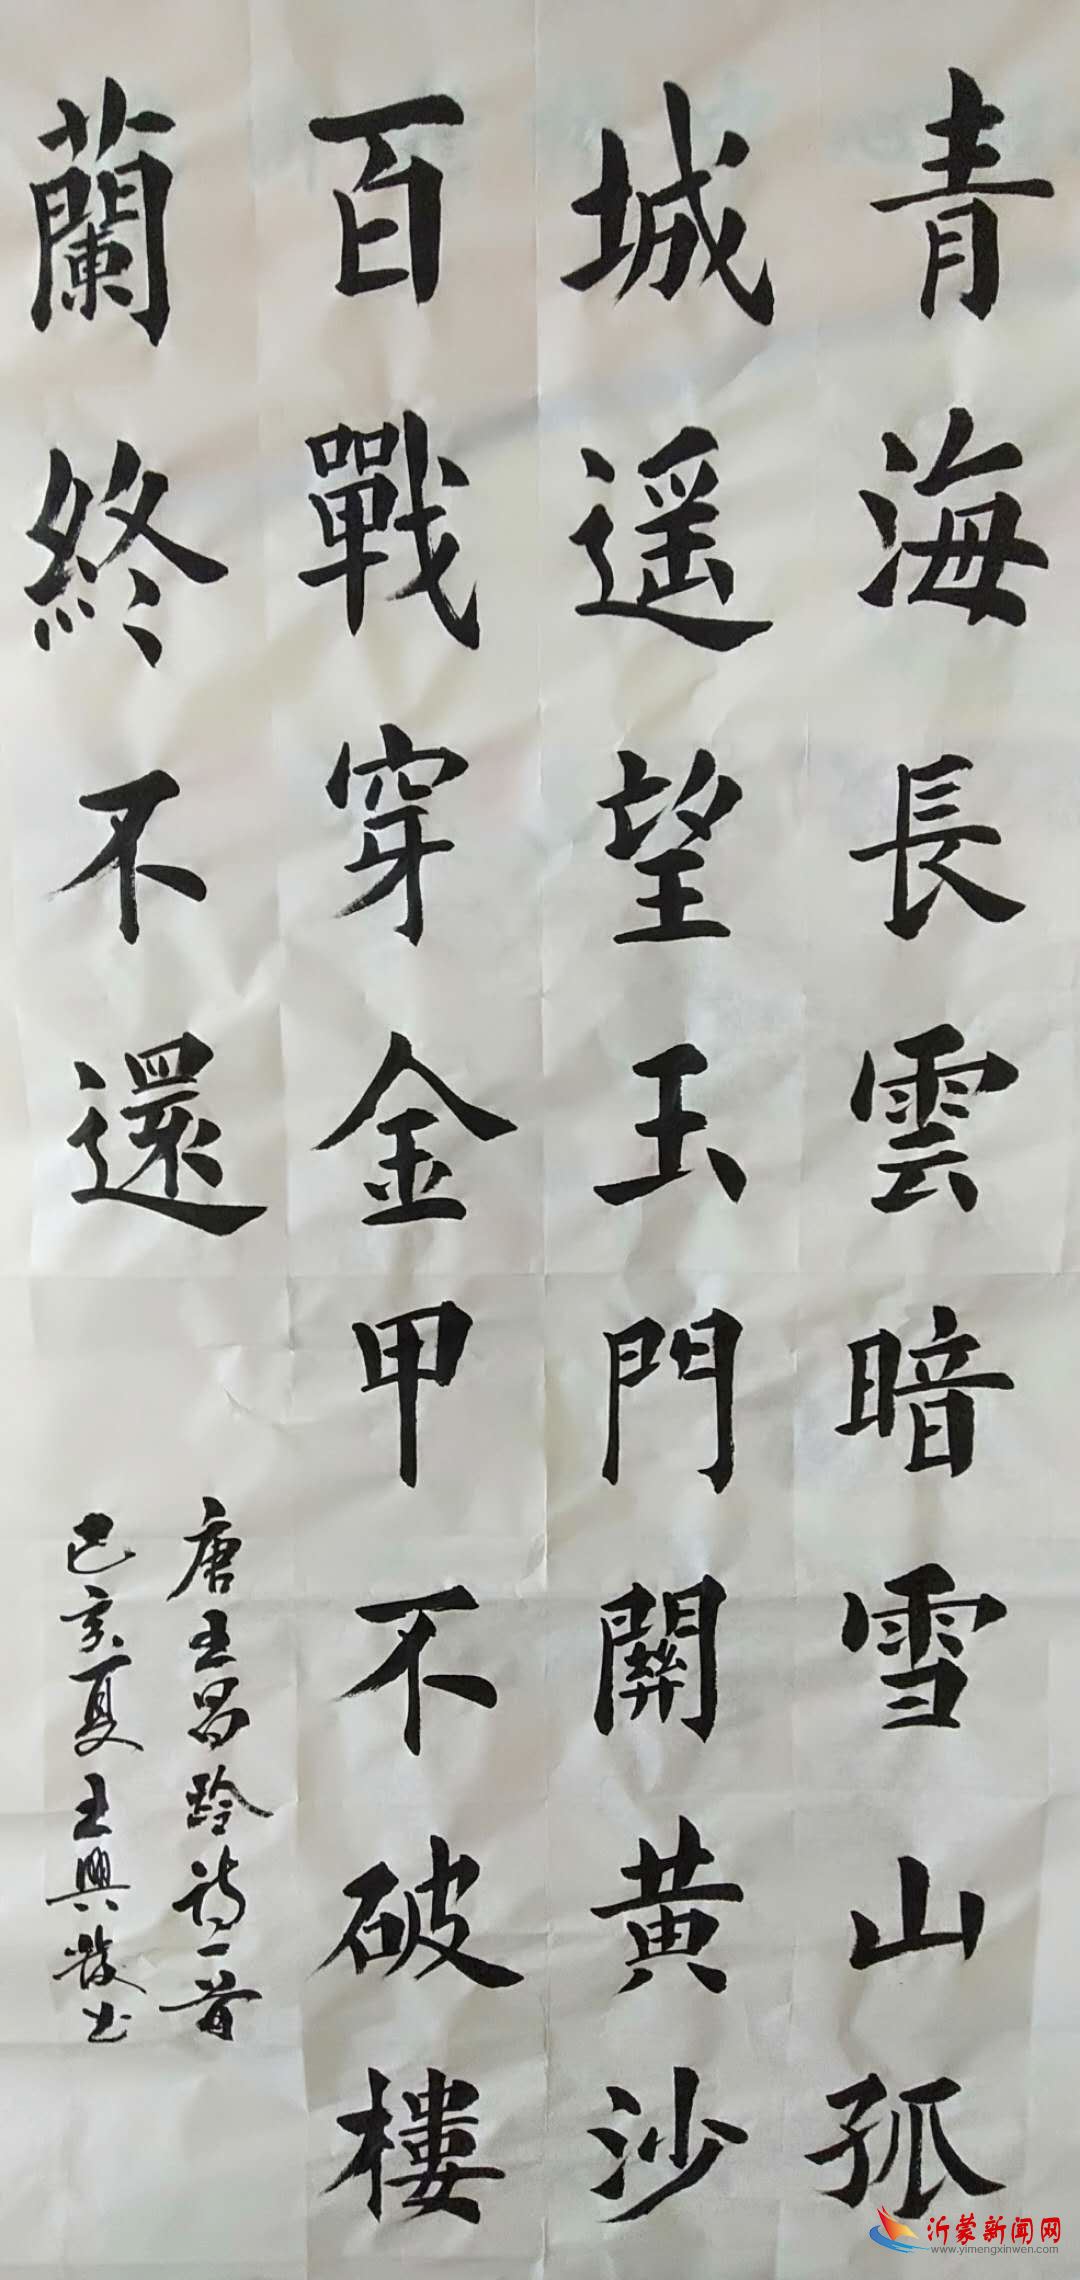 青海長雲暗雪山孤
城遥望玉門關黄沙
百戰穿金甲不破樓
蘭終不還
唐王昌玲詩一首
己亥夏王興發书
沂蒙新闻网
www.yimengxinwen.com